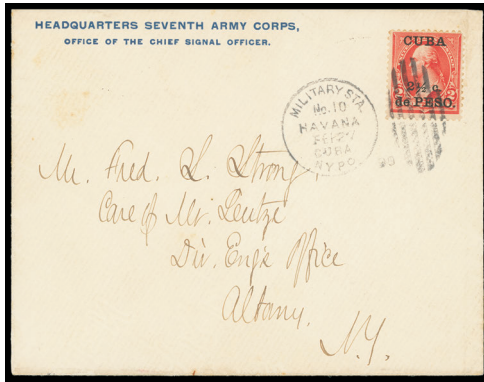 HEADQUARTERS SEVENTH ARMY CORPS,
OFFICE OF THE CHIEF SIGNAL OFFICER.
CUBA
2½ c.
de PESO.
2 2
MILITARY STA.
No. 10
HAVANA
FEB 27
CUBA
N.Y.P.O.
99
Mr. Fred. L. Strong
Care of Mr. Leutze
Div. Eng's Office
Albany.
N.Y.